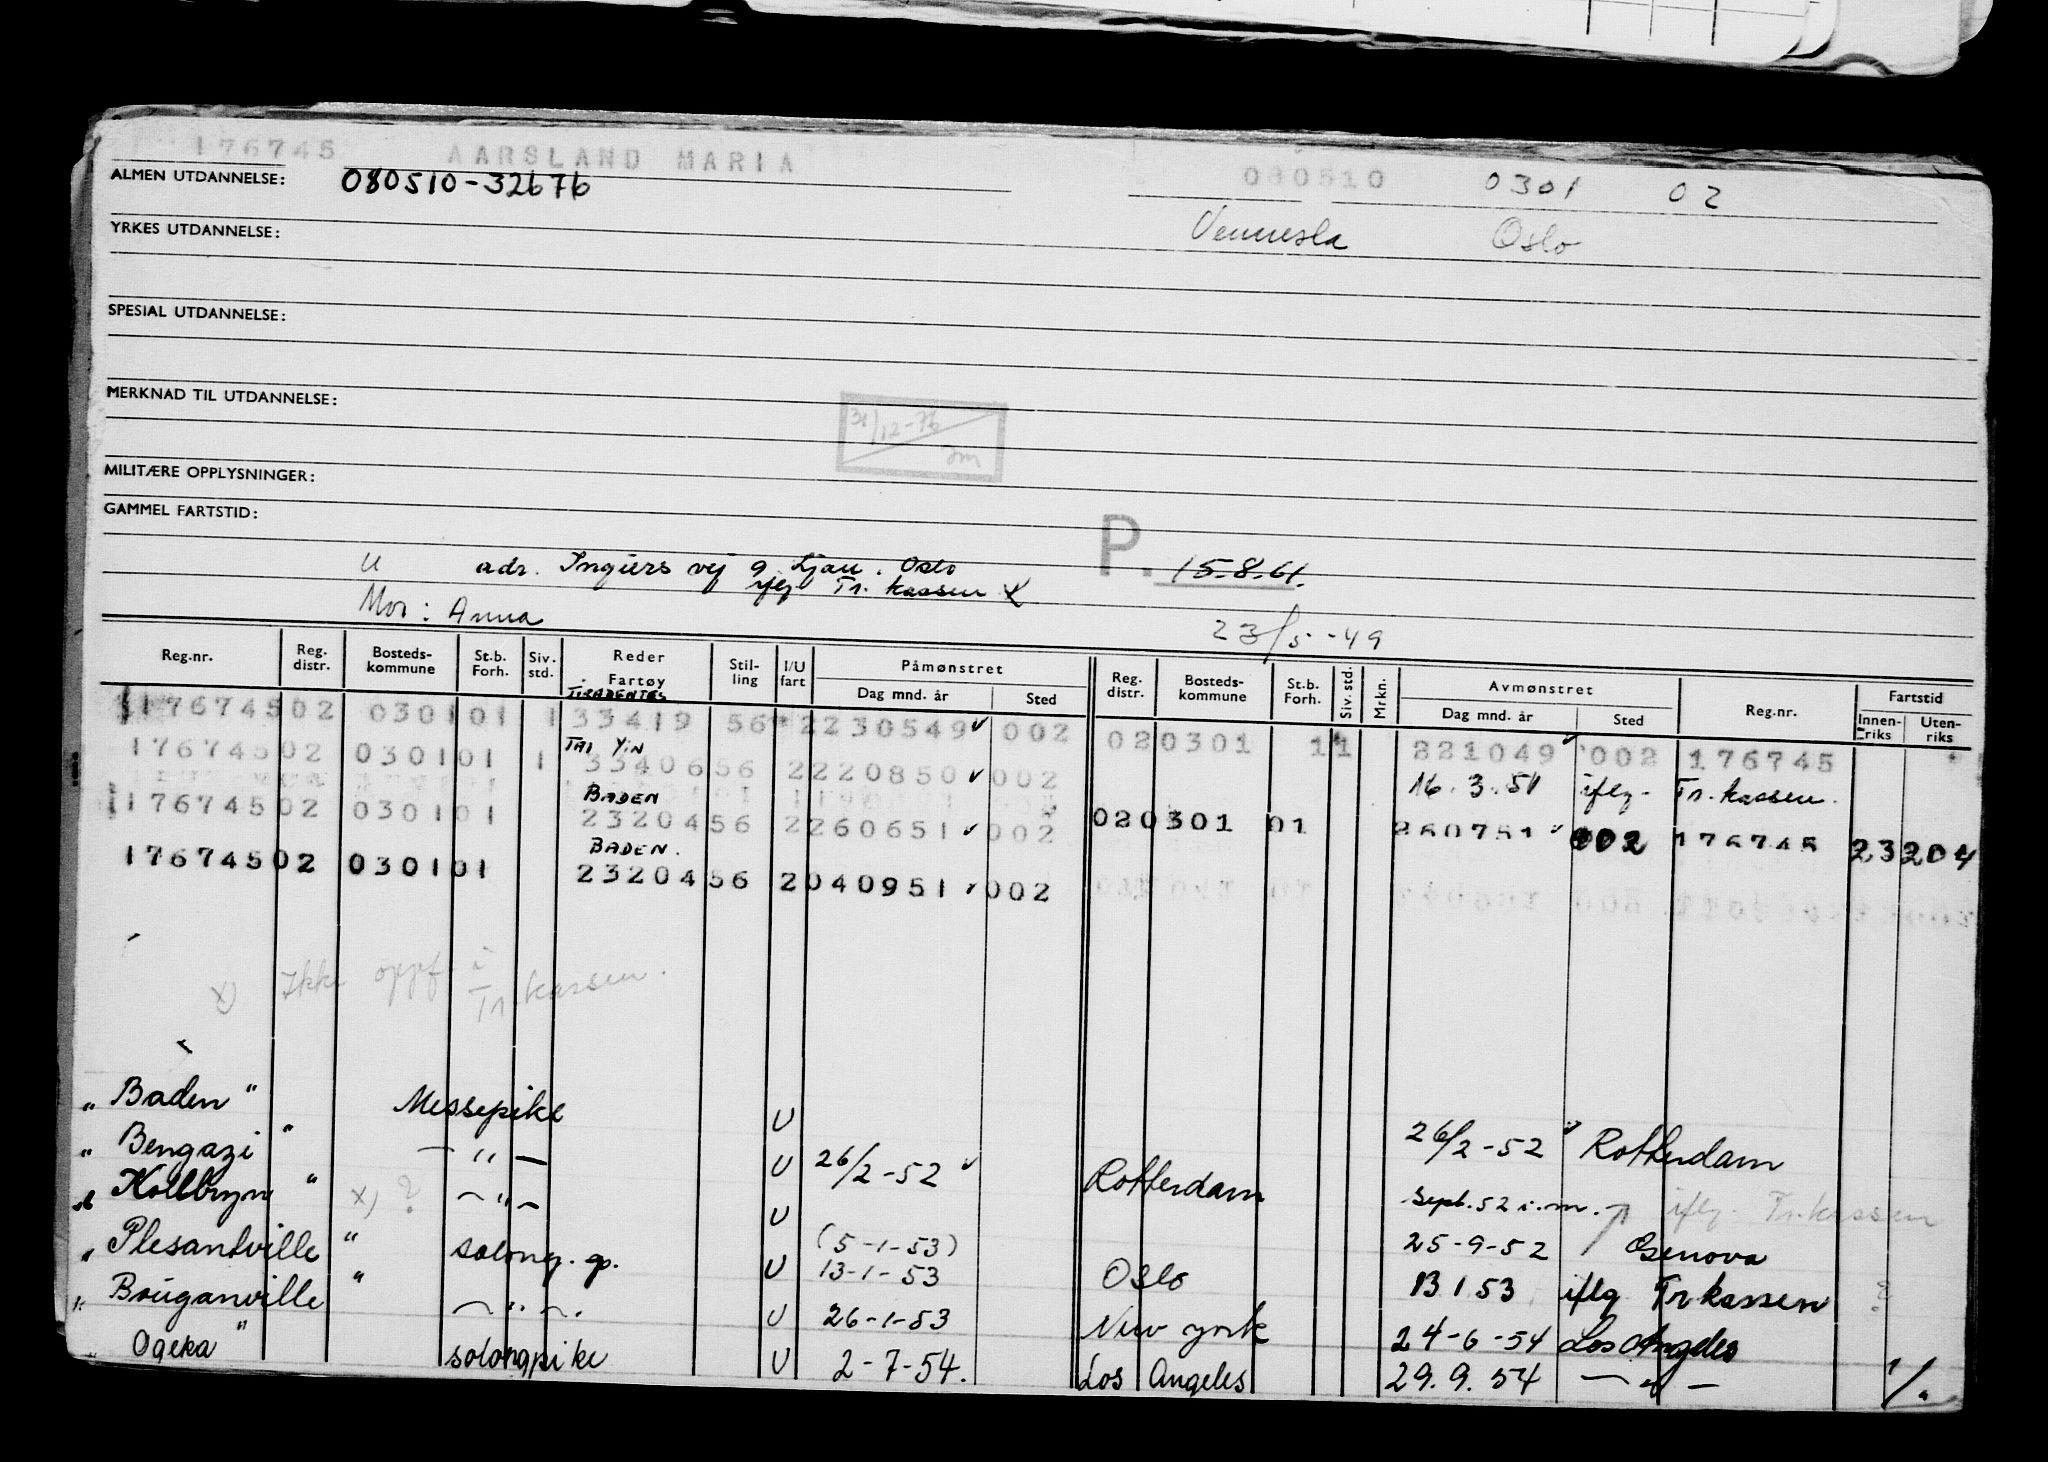 176745 AARSLAND MARIA 080510 0301 02
ALMEN UTDANNELSE: 080510-32676
Vennesla Oslo
YRKES UTDANNELSE:
SPESIAL UTDANNELSE:
MERKNAD TIL UTDANNELSE:
31/12-76
MILITÆRE OPPLYSNINGER:
GAMMEL FARTSTID:
P. 15.8.61.
U adr. Ingiers vej 9 Ljan. Oslo
iflg Tr. kassen
Mor: Anna
23/5-49
Reg.nr. Reg. distr. Bosteds- kommune St.b. Forh. Siv. std. Reder Fartøy Stil- ling I/U fart Påmønstret Dag mnd. år Sted Reg. distr. Bosteds- kommune St.b. Forh. Siv. std. Mrkn. Avmønstret Dag mnd. år Sted Reg.nr. Fartstid Innen- riks Uten- riks
TIRADENTES
176745 02 0301 01 1 33419 56 2 230549 002 02 0301 1 1 221049 002 176745
TAI YIN
176745 02 0301 01 1 33406 56 2 220850 002 16.3.51 iflg. Tr. kassen.
BADEN
176745 02 0301 01 23204 56 2 260651 002 02 0301 01 260751 002 176745 23204
BADEN.
176745 02 0301 01 23204 56 2 040951 002
x) Ikke oppf. i
Tr. kassen.
"Baden" Messepike U 26/2-52 Rotterdam
"Bengazi" — " — U 26/2-52 Rotterdam Sept. 52 i.m. iflg. Tr. kassen
"Kollbryn" x) ? — " — U 25-9-52 Genova
"Plesantville" salong.p. U (5-1-53) 13-1-53 Oslo 13 1 53 iflg Tr kassen ?
"Bouganville" — " —. U 26-1-53 New york 24-6-54 Los Angeles
"Ogeka" salongpike U 2-7-54. Los Angeles 29.9.54 — " —